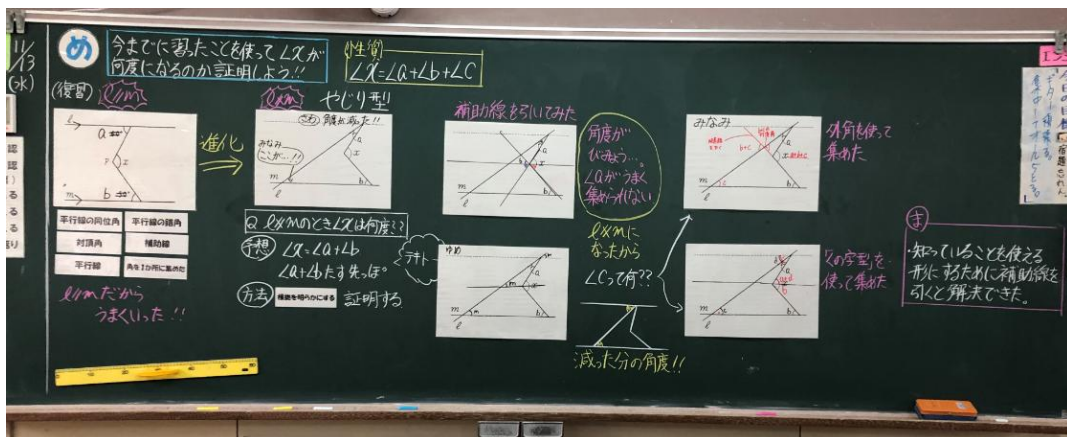 11/13
(水)
め
今までに習ったことを使って∠xが
何度になるのか証明しよう!!
(性質)
∠x=∠a+∠b+∠c
(復習)
l//m
l
a
x
m
b
平行線の同位角
平行線の錯角
対頂角
補助線
平行線
角を1か所に集めた
l//mだから
うまくいった!!
進化
l∦m
やじり型
みなみ
ここが…!!
a
x
m
l
b
Q l∦mのとき∠xは何度??
予想
∠x=∠a+∠b
∠a+∠bたす先っぽ
テキトー
方法
根拠を明らかにする
証明する
補助線を引いてみた
a
x
m
l
b
ゆめ
a
m
l
b
角度が
びみょう…。
∠aがうまく
集められない
l∦mに
なったから
∠Cって何??
減った分の角度!!
みなみ
b+c
a
x
m
l
c
b
外角を使って
集めた
a
m
l
b
「くの字型」を
使って集めた
ま
・知っていることを使える
形にするために補助線を
引くと解決できた。